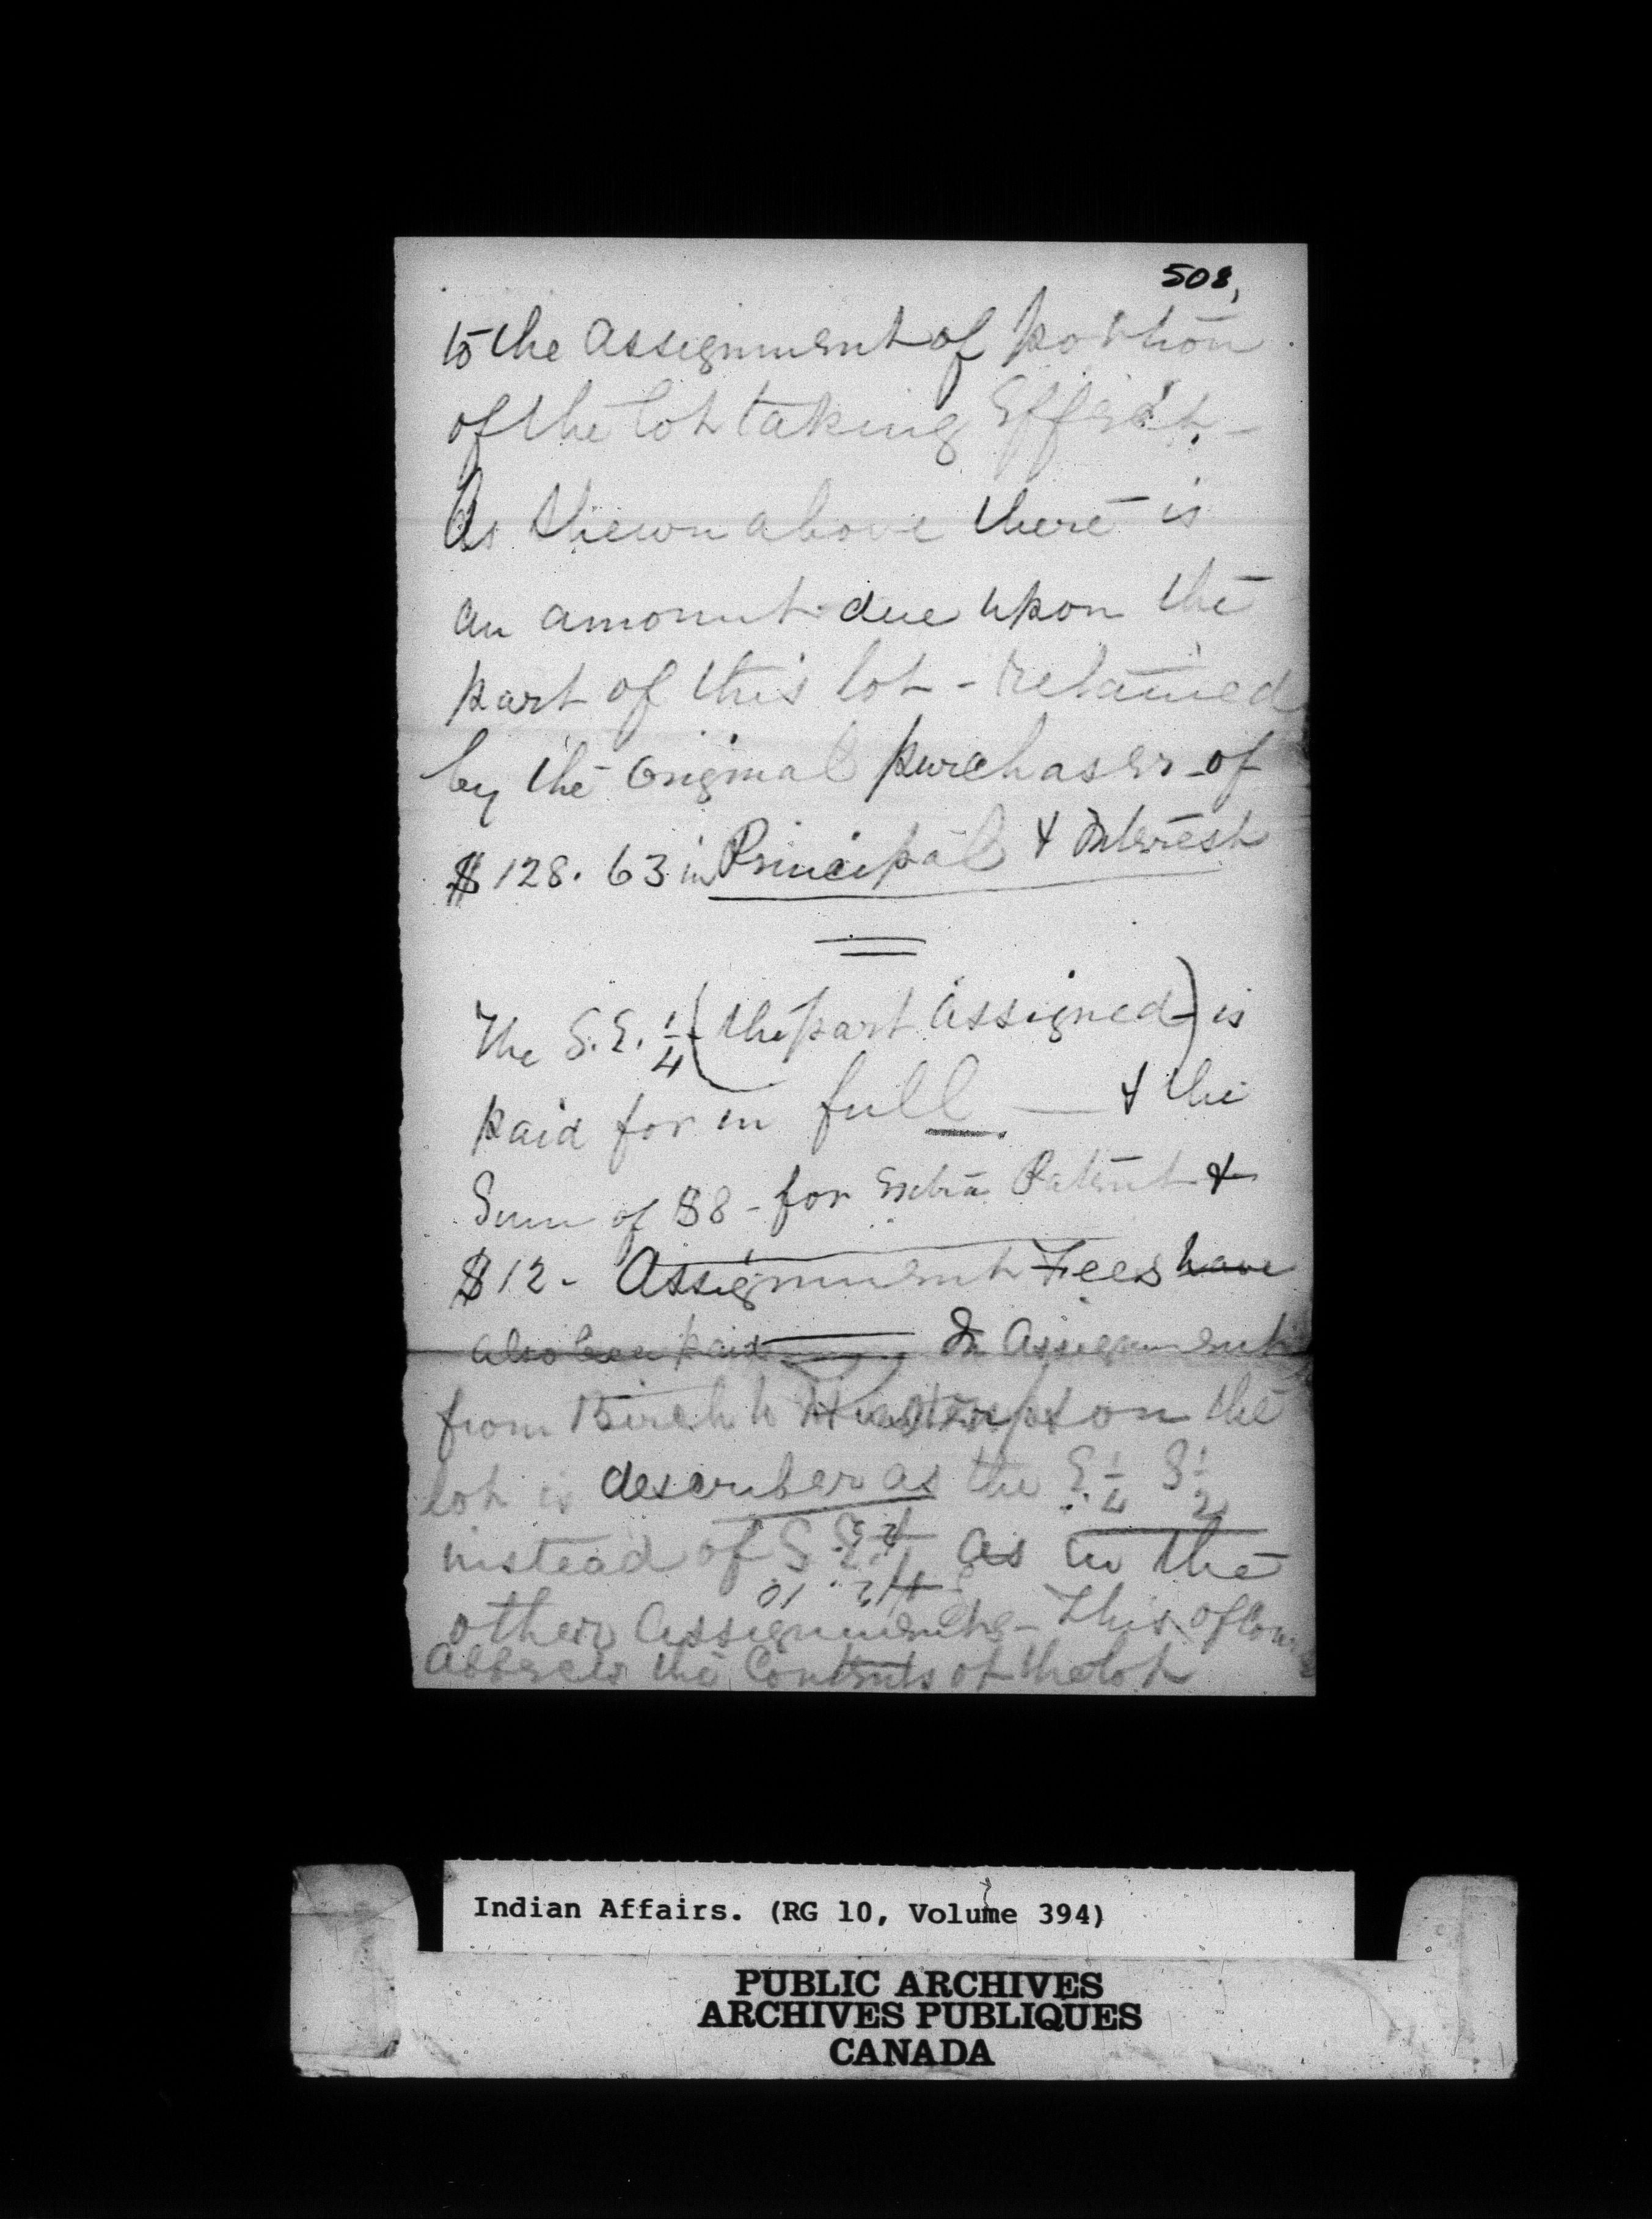 508,
to the assignment of portion
of the lot taking Effect -
As shewn above there is
an amount due upon the
part of this lot - retained
by the original purchaser of
$128.63 in Principal & Interest
The S.E. 1/4 (the part assigned) is
paid for in full — & the
Sum of $8 - for Extra Patent &
$12 - Assignment Fees have
also been paid In Assignment
from Birch to on the
lot is described as the E 1/4 S 1/2
instead of S.E. 1/4 as in the
other Assignments - This of Course
affects the Contents of the lot
Indian Affairs. (RG 10, Volume 394)
PUBLIC ARCHIVES
ARCHIVES PUBLIQUES
CANADA